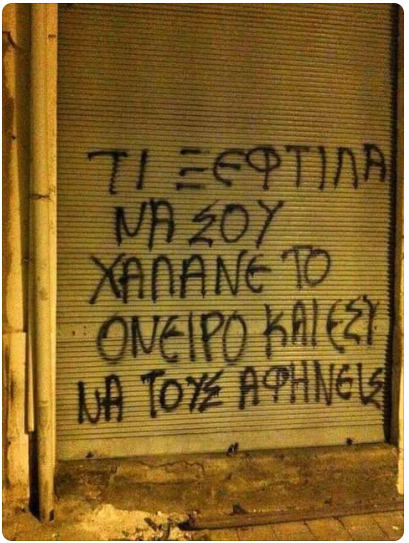 ΤΙ ΞΕΦΤΙΛΑ
ΝΑ ΣΟΥ
ΧΑΛΑΝΕ ΤΟ
ΟΝΕΙΡΟ ΚΑΙ ΕΣΥ
ΝΑ ΤΟΥΣ ΑΦΗΝΕΙΣ